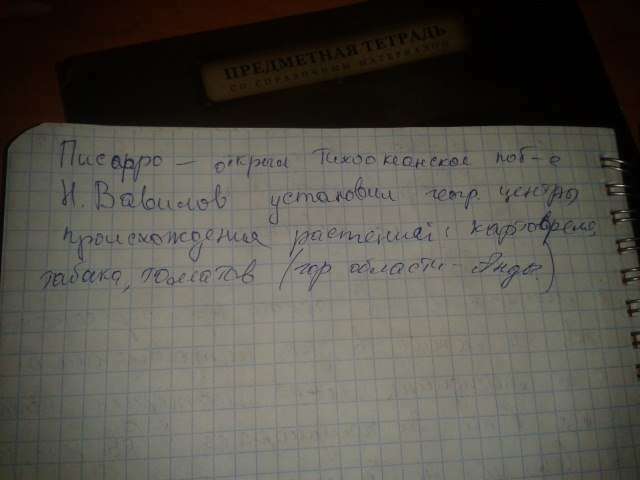 ПРЕДМЕТНАЯ ТЕТРАДЬ
СО СПРАВОЧНЫМ МАТЕРИАЛОМ
Писарро – открыл Тихоокеанское поб-е
Н. Вавилов установил геогр. центры
происхождения растений: картофеля,
табака, томатов (гор области – Анды)